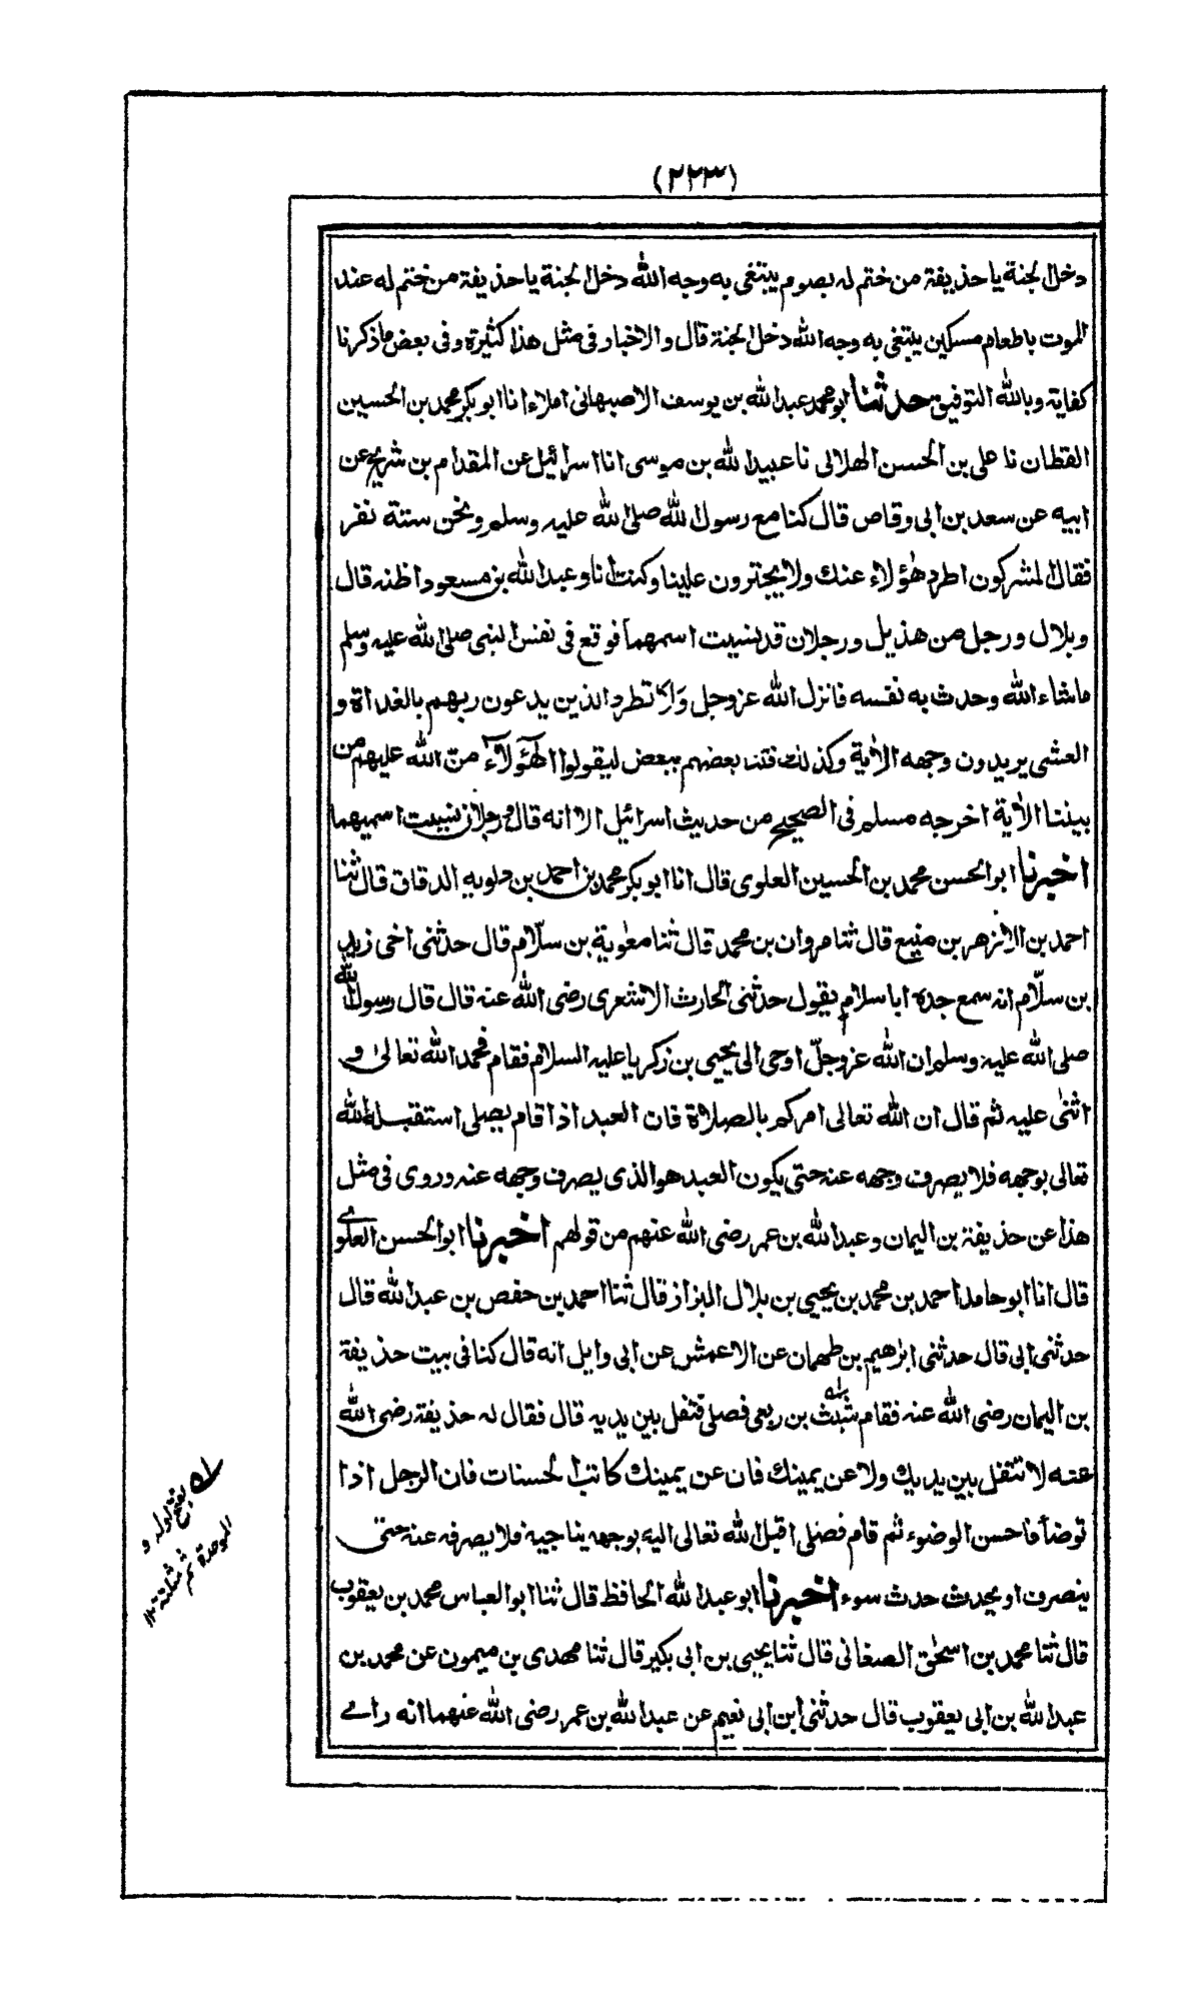 (٢٢٣)
دخل الجنة يا حذيفة من ختم له بصوم يبتغى به وجه الله دخل الجنة يا حذيفة من ختم له عند
الموت باطعام مسكين يبتغى به وجه الله دخل الجنة قال والاخبار فى مثل هذا كثيرة وفى بعض ما ذكرنا
كفاية وبالله التوفيق حدثنا ابو محمد عبد الله بن يوسف الاصبهانى املاء انا ابو بكر محمد بن الحسين
القطان نا على بن الحسن الهلالى نا عبيد الله بن موسى انا اسرائيل عن المقدام بن شريح عن
ابيه عن سعد بن ابى وقاص قال كنا مع رسول الله صلى الله عليه وسلم ونحن ستة نفر
فقال المشركون اطرد هٰؤلاء عنك ولا يجترون علينا وكنت انا وعبد الله بن مسعود اظنه قال
وبلال ورجل من هذيل ورجلان قد نسيت اسمهما فوقع فى نفس النبى صلى الله عليه وسلم
ما شاء الله وحدث به نفسه فانزل الله عز وجل وَلا تطرد الذين يدعون ربهم بالغداة و
العشى يريدون وجهه الاٰية وكذلك فتنا بعضهم ببعض ليقولوا اهٰٓؤلاءِ منّ الله عليهم من
بيننا الاٰية اخرجه مسلم فى الصحيح من حديث اسرائيل الا انه قال ورجلان نسيت اسميهما
اخبرنا ابو الحسن محمد بن الحسين العلوى قال انا ابو بكر محمد بن احمد بن دلويه الدقاق قال ثنا
احمد بن الازهر بن منيع قال ثنا مروان بن محمد قال ثنا معٰوية بن سلّام قال حدثنى اخى زيد
بن سلّام انه سمع جده ابا سلام يقول حدثنى الحارث الاشعرى رضى الله عنه قال قال رسول الله
صلى الله عليه وسلم ان الله عز وجلّ اوحى الى يحيى بن زكريا عليه السلام فقام فحمد الله تعالىٰ و
اثنٰى عليه ثم قال ان الله تعالى امركم بالصلاة فان العبد اذا قام يصلى استقبله الله
تعالى بوجهه فلا يصرف وجهه عنه حتى يكون العبد هو الذى يصرف وجهه عنه وروى فى مثل
هذا عن حذيفة بن اليمان وعبد الله بن عمر رضى الله عنهم من قولهم اخبرنا ابو الحسن العلوى
قال انا ابو حامد احمد بن محمد بن يحيى بن بلال البزاز قال ثنا احمد بن حفص بن عبد الله قال
حدثنى ابى قال حدثنى ابرٰهيم بن طهمان عن الاعمش عن ابى وايل انه قال كنا فى بيت حذيفة
بن اليمان رضى الله عنه فقام شبث بن ربعى فصلى فتفل بين يديه قال فقال له حذيفة رضى الله
عنه لا تتفل بين يديك ولا عن يمينك فان عن يمينك كاتب الحسنات فان الرجل اذا
توضأ فاحسن الوضوء ثم قام فصلى اقبل الله تعالى اليه بوجهه يناجيه فلا يصرفه عنه حتى
ينصرف او يحدث حدث سوء اخبرنا ابو عبد الله الحافظ قال ثنا ابو العباس محمد بن يعقوب
قال ثنا محمد بن اسحٰق الصغانى قال ثنا يحيى بن ابى بكير قال ثنا مهدى بن ميمون عن محمد بن
عبد الله بن ابى يعقوب قال حدثنى ابن ابى نعيم عن عبد الله بن عمر رضى الله عنهما انه راے
له بفتح اوله و
الموحدة ثم مثلثة ١٢